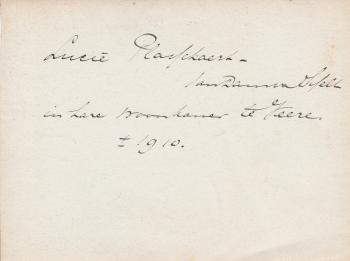 Lucie Plasschaert-
van Damme Isselt
in hare woonkamer te Veere.
± 1910.